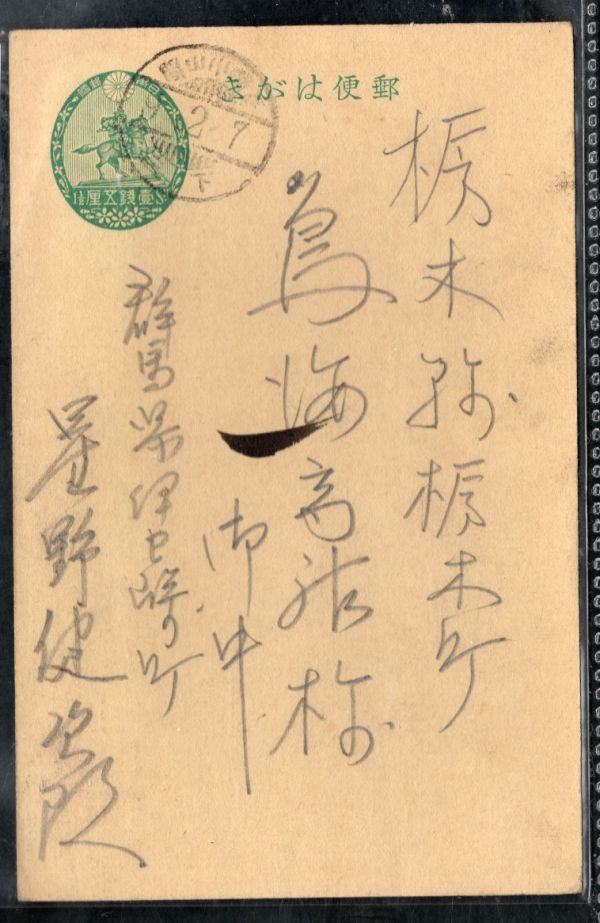 郵便はがき
壹銭五厘
2 7
下
栃木縣栃木町
鳥海商店様
御中
群馬県伊セ崎町
星野健次郎